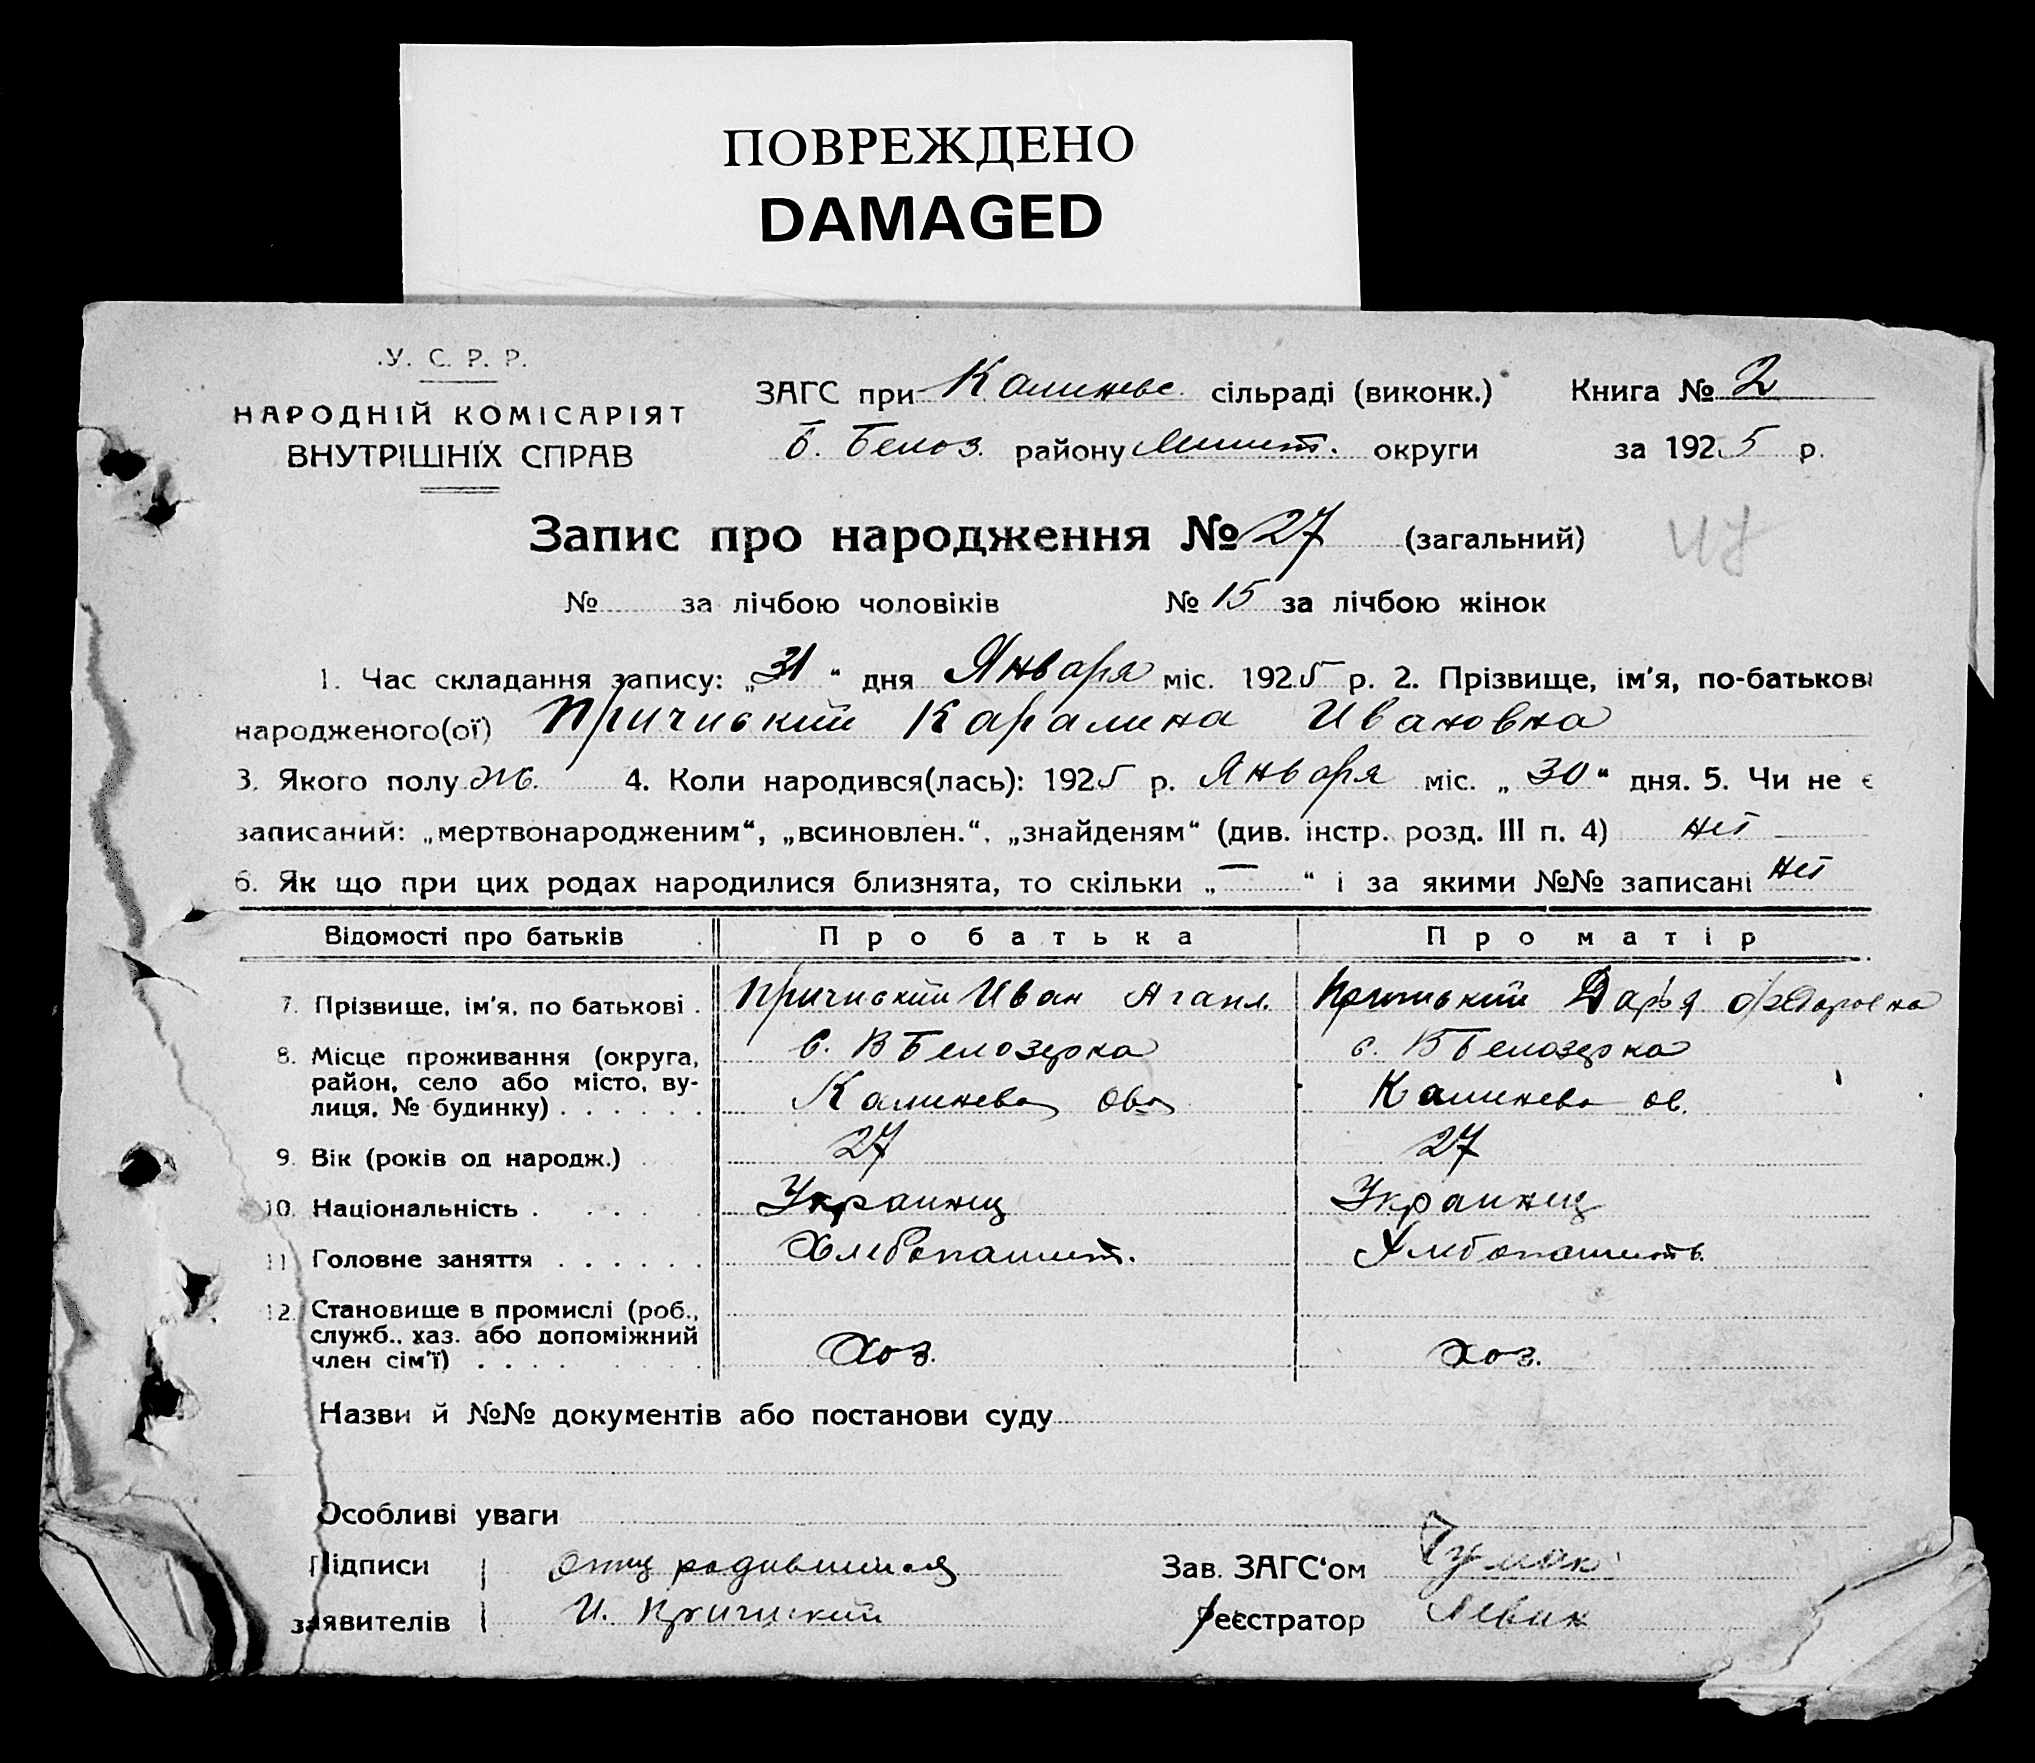 ПОВРЕЖДЕНО
DAMAGED
У. С. Р. Р.
НАРОДНІЙ КОМІСАРІЯТ
ВНУТРІШНІХ СПРАВ
ЗАГС при Калиневс. сільраді (виконк.) Книга № 2
Б. Белоз. району Мелит. округи за 1925 р.
Запис про народження № 27 (загальний)
47
№ за лічбою чоловіків № 15 за лічбою жінок
1. Час складання запису: „31“ дня Января міс. 1925 р. 2. Прізвище, ім'я, по-батькові
народженого(ої) Причиський Каралина Ивановна
3. Якого полу ж. 4. Коли народився(лась): 1925 р. Января міс. „30“ дня. 5. Чи не є
записаний: „мертвонародженим“, „всиновлен.“, „знайденям“ (див. інстр. розд. III п. 4) нет
6. Як що при цих родах народилися близнята, то скільки „—“ і за якими №№ записані нет
Відомості про батьків Про батька Про матір
7. Прізвище, ім'я, по батькові . Причиський Иван Агапл. Причиський Дарья Федоровна
8. Місце проживання (округа, район, село або місто, вулиця, № будинку) . . . . . . с. В Белозерка с. В Белозерка
9. Вік (років од народж.) 27 27
10. Національність . . . . Украинец Украинец
11. Головне заняття . . . . . . Хлебопашет. Хлебопашеств.
12. Становище в промислі (роб., служб., хаз. або допоміжний член сім'ї) . . . . Хоз. хоз.
Назви й №№ документів або постанови суду
Особливі уваги
Підписи отец родившийся Зав. ЗАГС'ом Чумак
заявителів И. Причиский Реєстратор Левик